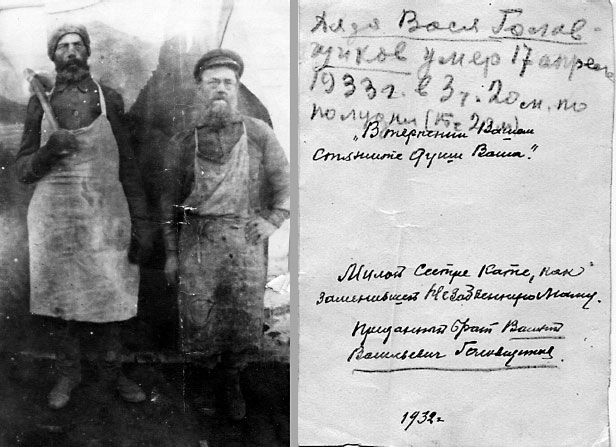 Дядя Вася Голов-
щиков умер 17 апреля
1933 г. в 3 ч. 20 м. по
полудни
„В терпении Вашем
стяжите души Ваша."
Милой сестре Кате, как
заменившей Незабвенную Маму.
Преданный брат Василий
Васильевич Головщиков.
1932 г